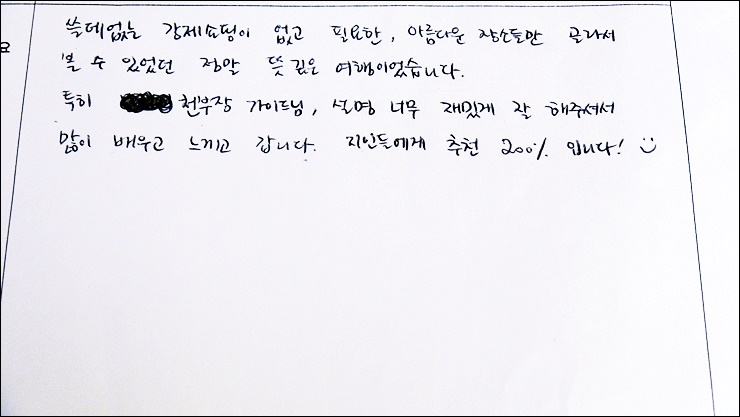 쓸데없는 강제쇼핑이 없고 필요한, 아름다운 장소들만 골라서
요
볼 수 있었던 정말 뜻 깊은 여행이었습니다.
특히 천부장 가이드님, 설명 너무 재밌게 잘 해주셔서
많이 배우고 느끼고 갑니다. 지인들에게 추천 200% 입니다!